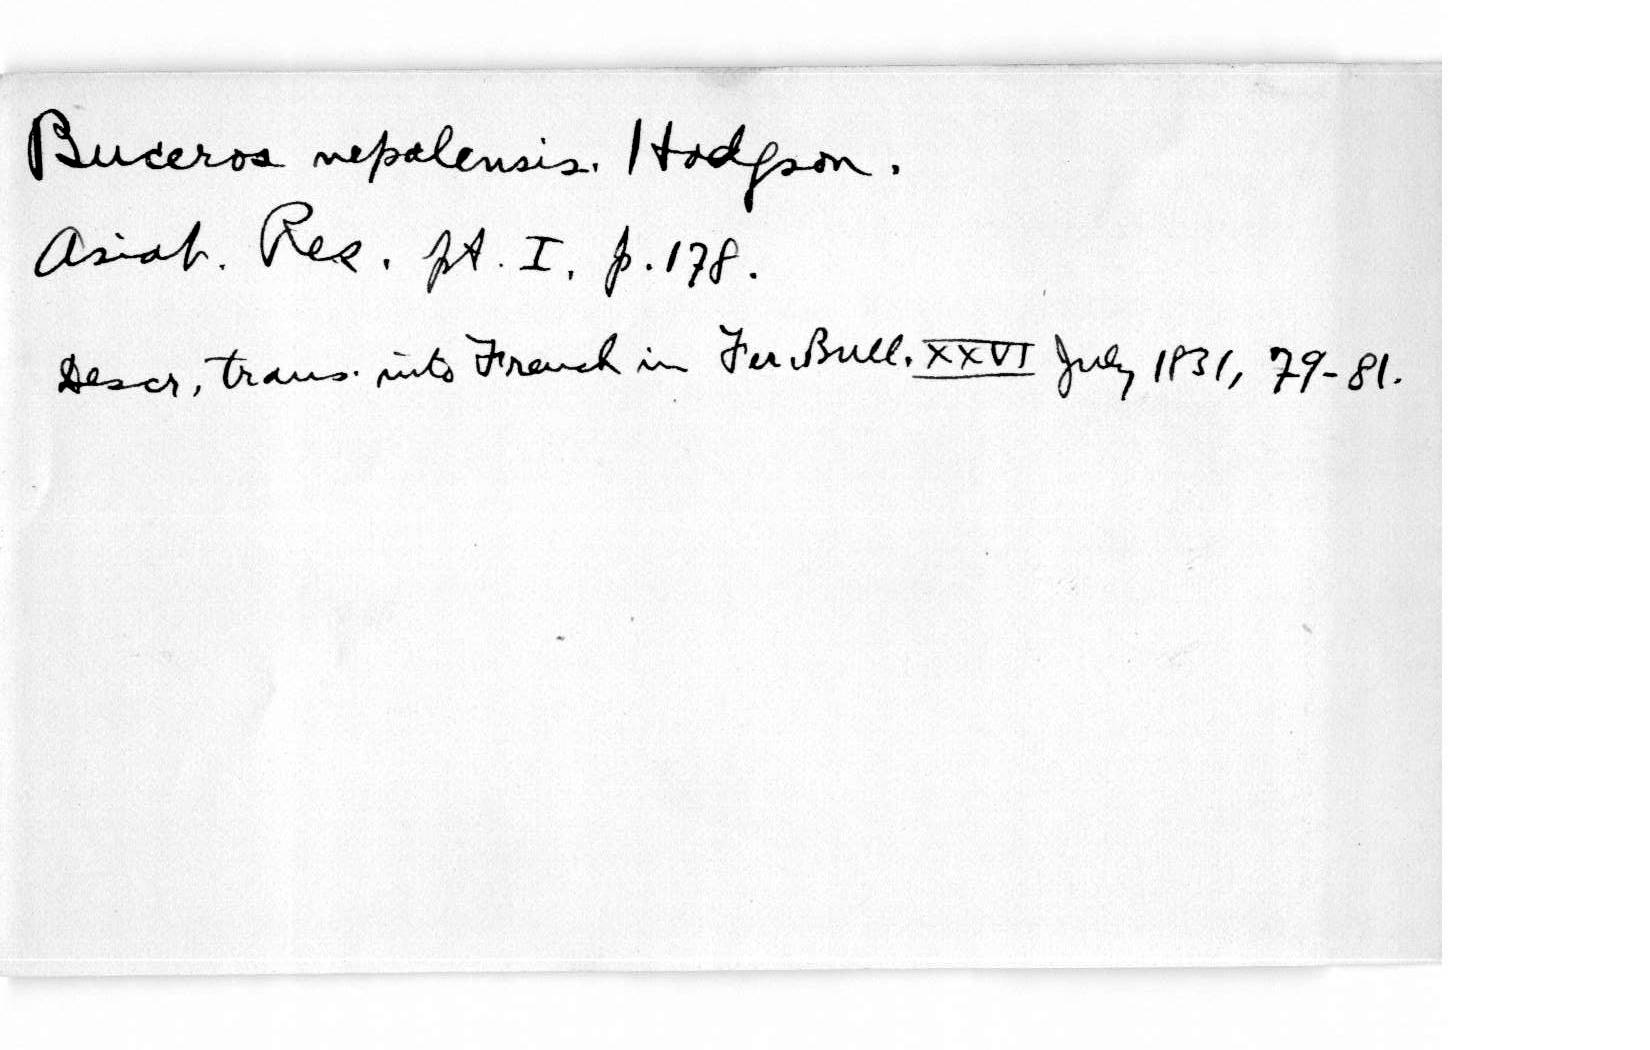 Buceros nepalensis. Hodgson.
Asiat. Res. pt. I, p. 178.
Descr, trans. into French in Fer. Bull. XXVI July 1831, 79-81.